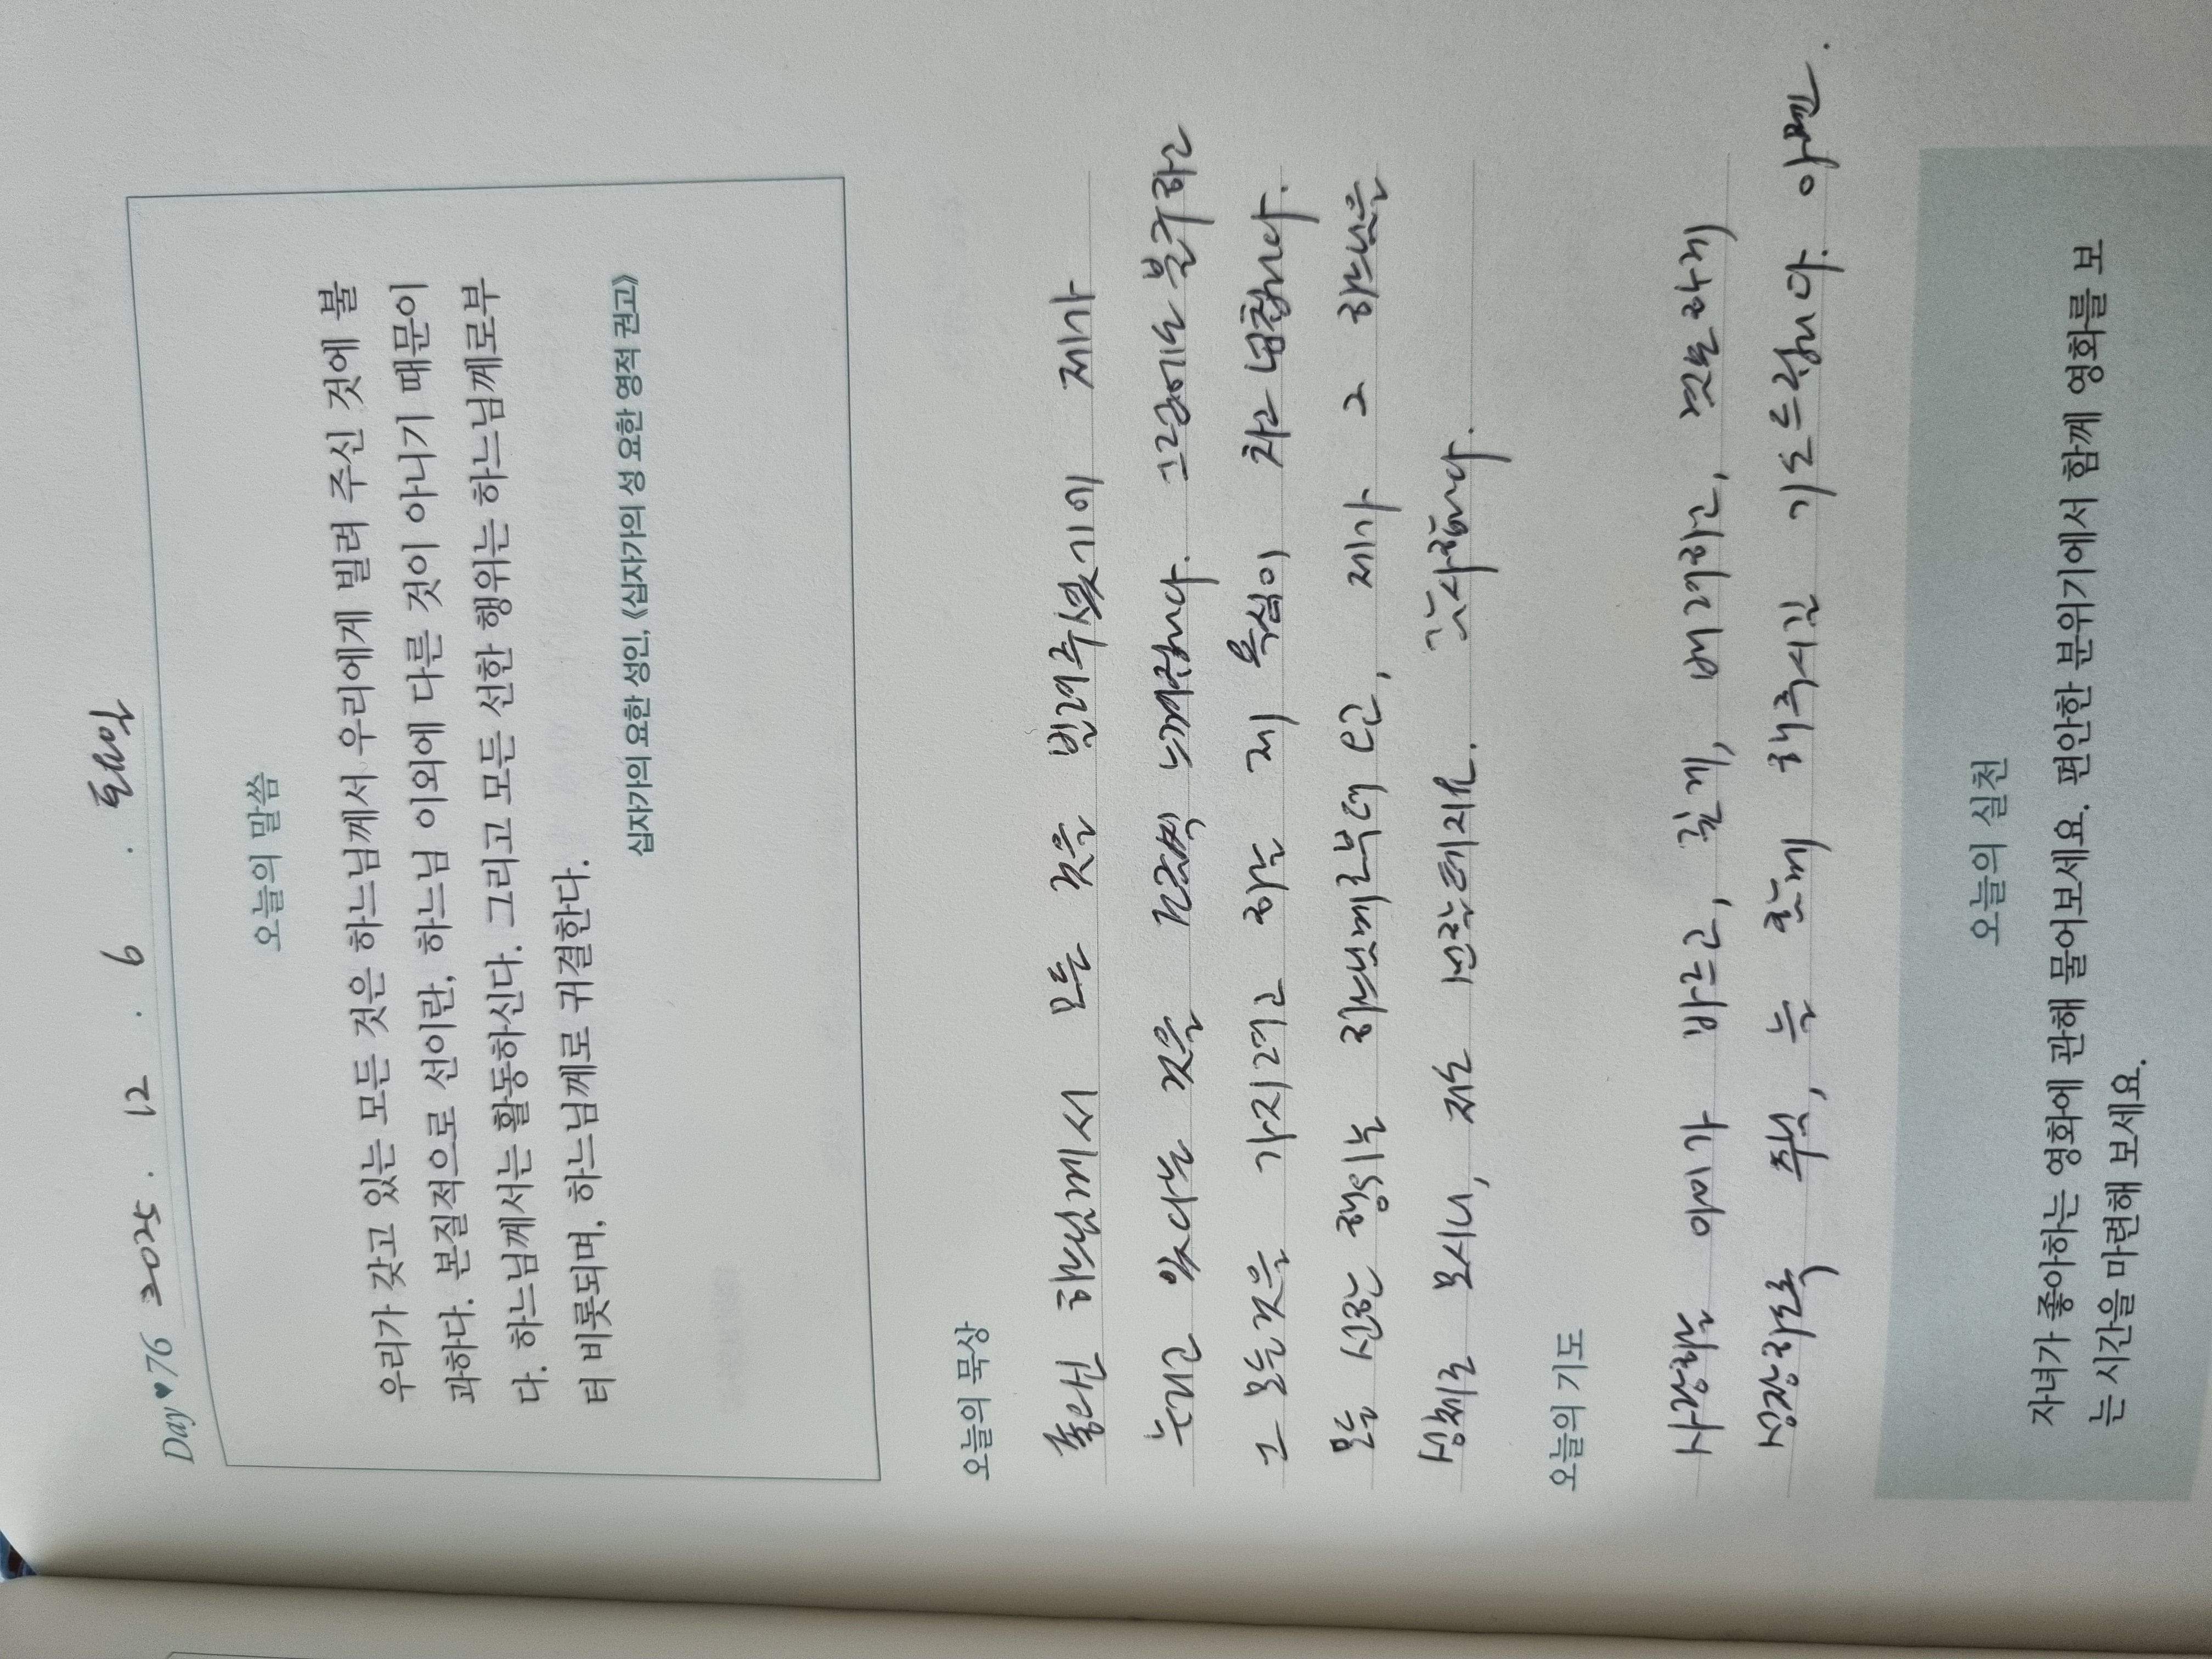 Day ♥ 76 2025. 12. 6. 토요일
오늘의 말씀
우리가 갖고 있는 모든 것은 하느님께서 우리에게 빌려 주신 것에 불
과하다. 본질적으로 선이란, 하느님 이외에 다른 것이 아니기 때문이
다. 하느님께서는 활동하신다. 그리고 모든 선한 행위는 하느님께로부
터 비롯되며, 하느님께로 귀결한다.
십자가의 요한 성인, 《십자가의 성 요한 영적 권고》
오늘의 묵상
좋으신 하느님께서 모든 것을 빌려주셨기에 제가
누리고 있다는 것을 느껴집니다. 그럼에도 불구하고
그 모든것을 가지려고 하는 제 욕심이 차고 넘칩니다.
모든 선한 행위는 하느님께로부터 오고, 제가 그 하느님을
성체로 모시니, 저도 해지요. 감사합니다.
오늘의 기도
사랑하는 아이가 바르고, 곧게, 배려하고, 건강하게
성장하도록 주님, 늘 함께 해주시길 기도드립니다. 아멘.
오늘의 실천
자녀가 좋아하는 영화에 관해 물어보세요. 편안한 분위기에서 함께 영화를 보
는 시간을 마련해 보세요.